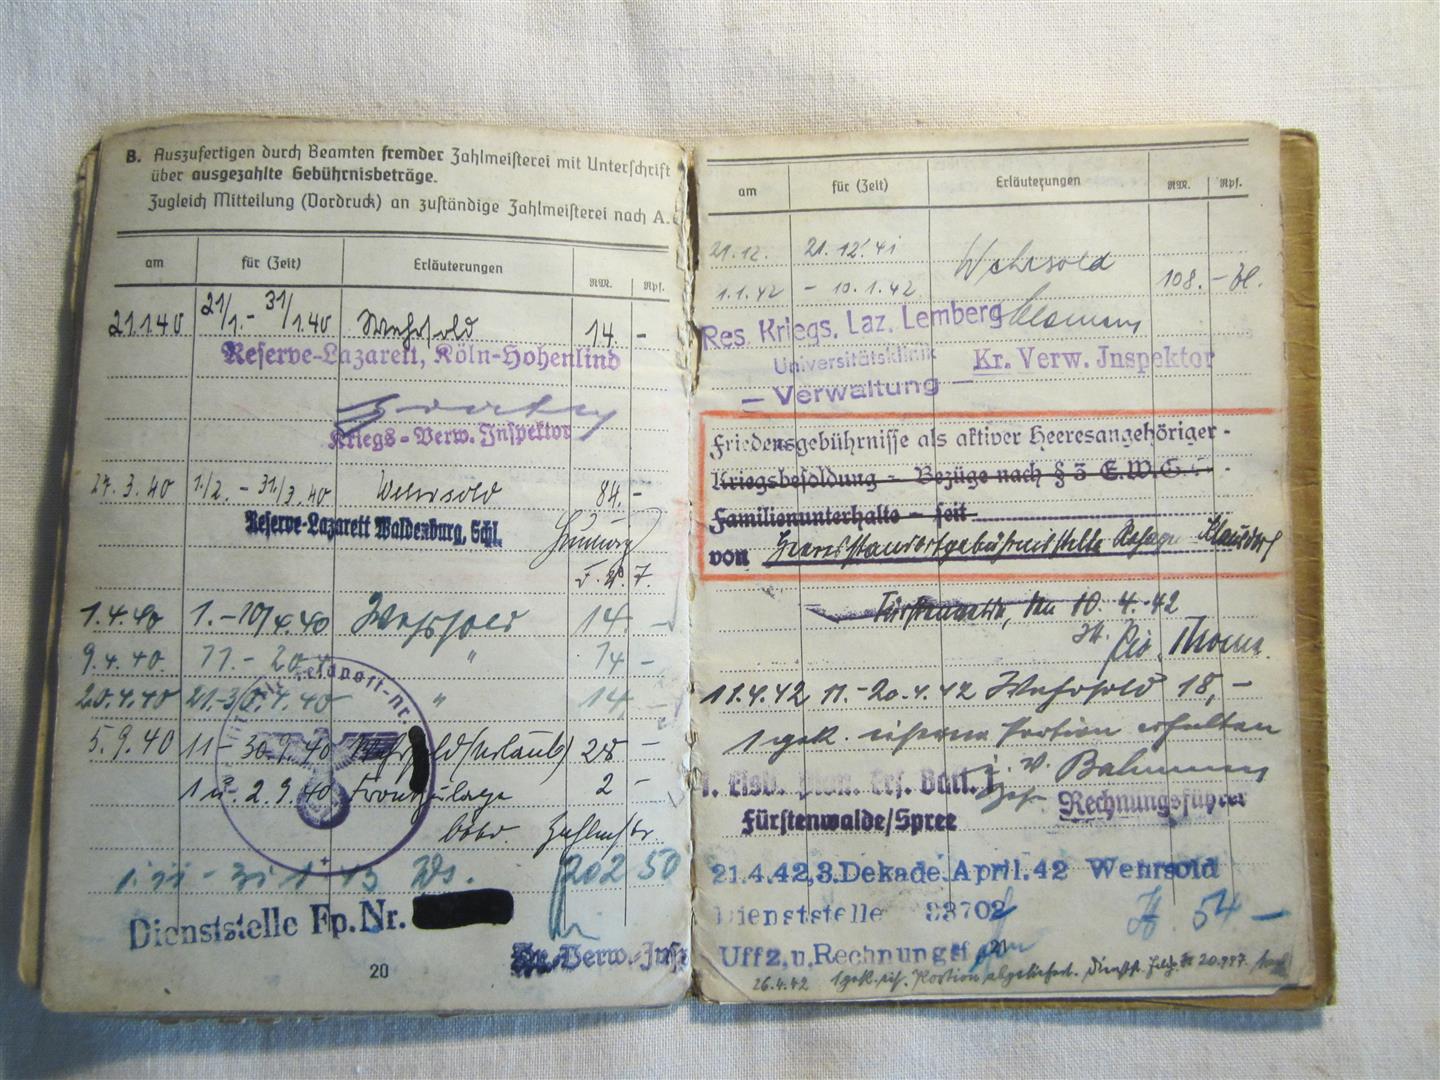 B. Auszufertigen durch Beamten fremder Zahlmeisterei mit Unterschrift
über ausgezahlte Gebührnisbeträge.
Zugleich Mitteilung (Vordruck) an zuständige Zahlmeisterei nach A.
am für (Zeit) Erläuterungen RM. Rpf.
21.1.40 21/1. - 31/1.40 Wehrsold 14. -
Reserve-Lazarett, Köln-Hohenlind
Kriegs-Verw. Inspektor
27.3.40 1/2. - 31/3.40 Wehrsold 84. -
Reserve-Lazarett Waldenburg, Schl.
1.4.40 1.-10/4.40 Wehrsold 14. -
9.4.40. 11. - 20.4 " 14 -
20.4.40 21.-30.4.40 " 14, -
Feldpost-nr.
5.9.40 11 - 30.9.40 Wehrsold (Urlaub) 28 -
1 u. 2.9.40 Frontzulage 2 -
Zahlmstr.
Ws. 202 50
Dienststelle Fp.Nr.
Kr. Verw.-Insp
20
am für (Zeit) Erläuterungen RM. Rpf.
21.12. 21.12.41 Wehrsold
1.1.42 - 10.1.42 108.-
Res. Kriegs. Laz. Lemberg
Universitätsklinik Kr. Verw. Jnspektor
- Verwaltung -
Friedensgebührnisse als aktiver Heeresangehöriger -
Kriegsbesoldung - Bezüge nach § 3 E.W.G. -
Familienunterhalt - seit
von Heeresstandortgebührnisstelle
Fürstenwalde, den 10.4.42
11.4.42 11.-20.4.42 Wehrsold 18,-
1 gek. eiserne Portion erhalten
Ers. Batl. 1
Rechnungsführer
Fürstenwalde/Spree
21.4.42, 3. Dekade April. 42 Wehrsold
Dienststelle 54 -
Uffz. u. Rechnungsf
21
26.4.42 1 gek. eis. Portion abgeliefert.